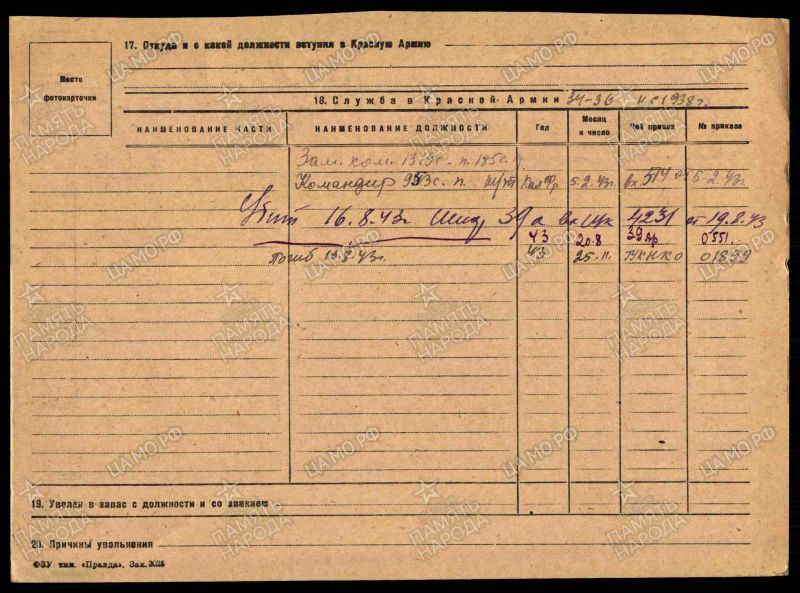 17. Откуда и с какой должности вступил в Красную Армию
Место
фотокарточки
18. Служба в Красной Армии 34-36 и с 1938 г.
НАИМЕНОВАНИЕ ЧАСТИ НАИМЕНОВАНИЕ ДОЛЖНОСТИ Год Месяц и число Чей приказ № приказа
Зам. ком. 1319 с. п. 185 с. д
Командир 953 с. п. Кал Фр. 5.2.43г. вх 514 от 5.2.43г.
Убит 16.8.43г. 39 а вх 4231 от 19.8.43
43 20.8 39 ар 0551.
Погиб 15.8.43г. 43 25.11. ГУК НКО 01839
19. Уволен в запас с должности и со званием
20. Причины увольнения
ФЗУ тип. «Правда». Зак. 3025
ЦАМО.РФ
ПАМЯТЬ НАРОДА